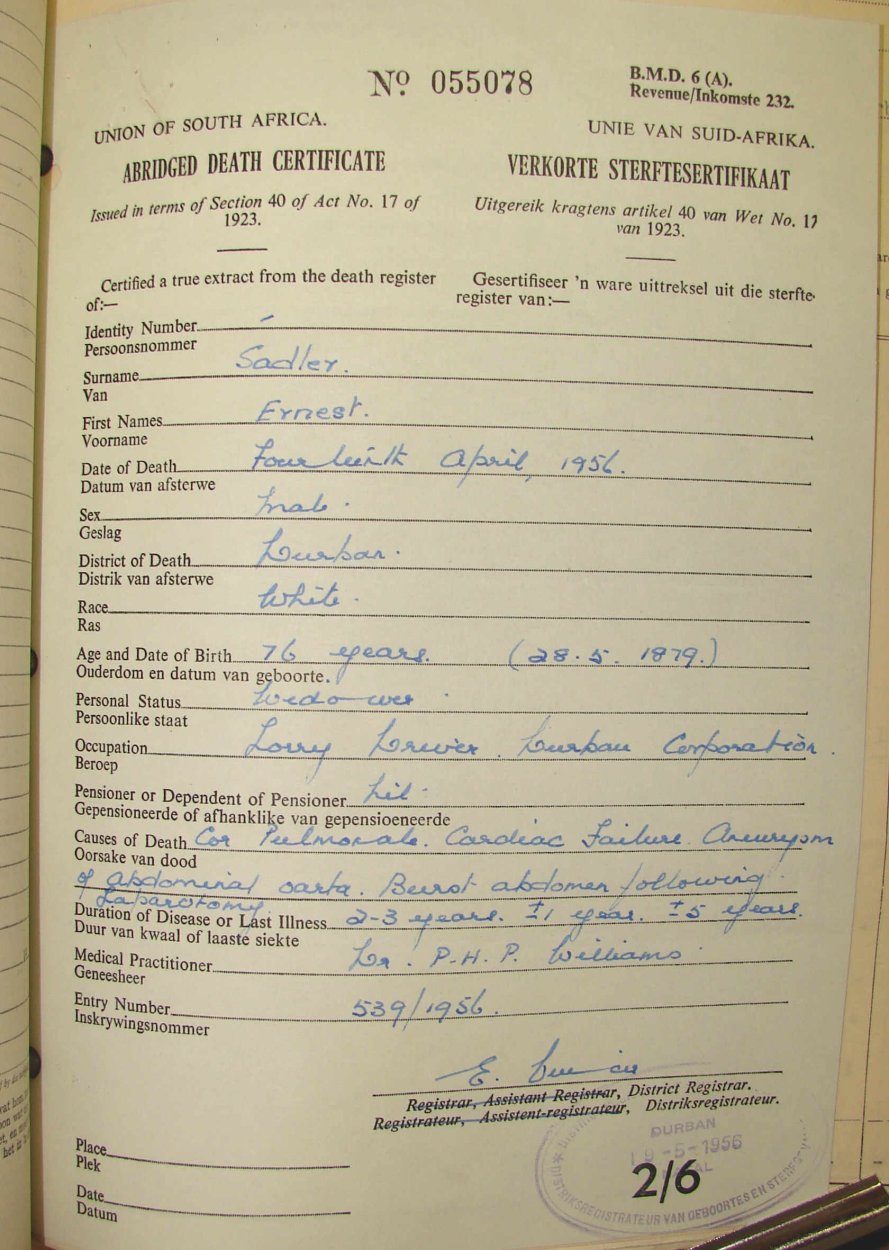 No 055078
B.M.D. 6 (A).
Revenue/Inkomste 232.
UNION OF SOUTH AFRICA.
UNIE VAN SUID-AFRIKA.
ABRIDGED DEATH CERTIFICATE
VERKORTE STERFTESERTIFIKAAT
Issued in terms of Section 40 of Act No. 17 of
1923.
Uitgereik kragtens artikel 40 van Wet No. 17
van 1923.
Certified a true extract from the death register
of:—
Gesertifiseer 'n ware uittreksel uit die sterfte-
register van:—
Identity Number -
Persoonsnommer
Surname Sadler.
Van
First Names Ernest.
Voorname
Date of Death Fourteenth April, 1956.
Datum van afsterwe
Sex Male.
Geslag
District of Death Durban.
Distrik van afsterwe
Race White.
Ras
Age and Date of Birth 76 years. (28.5.1879.)
Ouderdom en datum van geboorte.
Personal Status Widower.
Persoonlike staat
Occupation Lorry Driver. Durban Corporation.
Beroep
Pensioner or Dependent of Pensioner Nil.
Gepensioneerde of afhanklike van gepensioeneerde
Causes of Death Cor Pulmonale. Cardiac Failure. Aneurysm
Oorsake van dood
of abdominal oarta. Burst abdomen following
Laparotomy.
Duration of Disease or Last Illness 2-3 years. ±1 year. ±5 years.
Duur van kwaal of laaste siekte
Medical Practitioner Dr. P.H.P. Williams.
Geneesheer
Entry Number 539/1956.
Inskrywingsnommer
E.
Registrar, Assistant Registrar, District Registrar.
Registrateur, Assistent-registrateur, Distriksregistrateur.
Place
Plek
Date
Datum
DURBAN
19-5-1956
2/6
DISTRIKSREGISTRATEUR VAN GEBOORTES EN